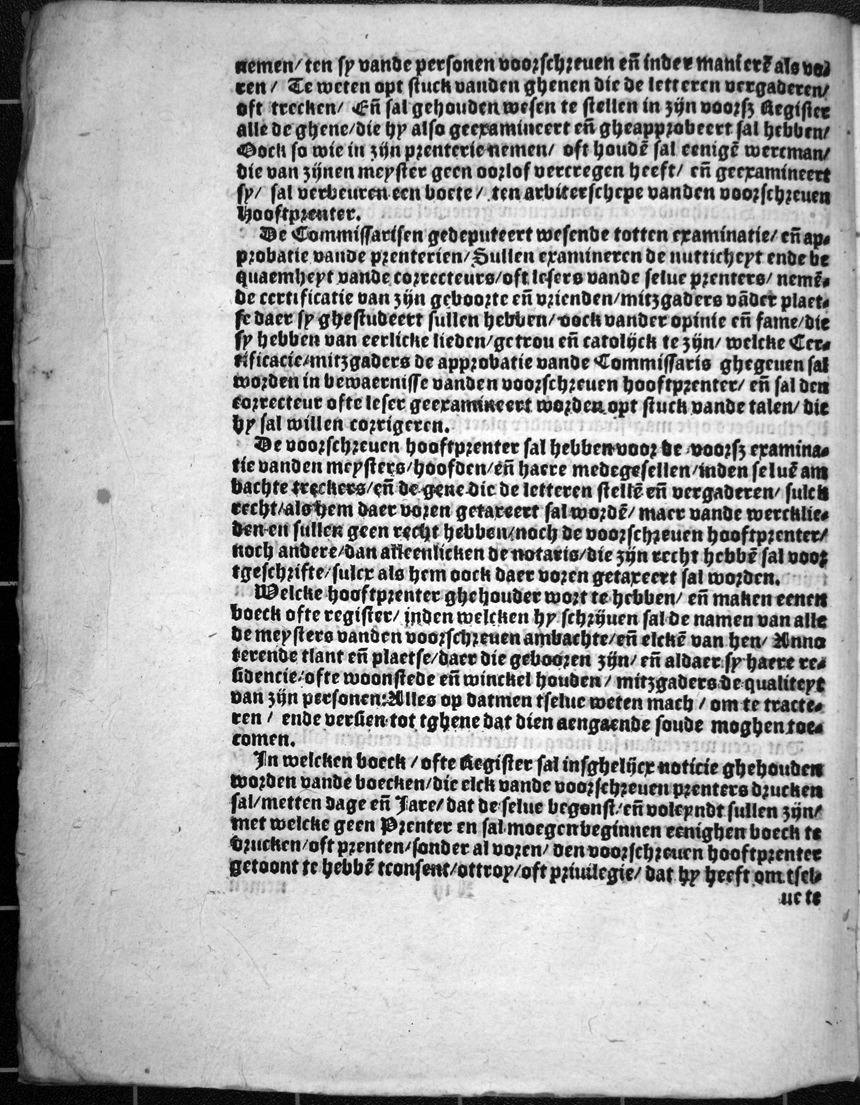 nemen/ ten sy vande personen voorschreuen eñ inder manierẽ als vo⸗
ren/ Te weten opt stuck vanden ghenen die de letteren vergaderen/
oft trecken/ Eñ sal gehouden wesen te stellen in zijn voorsz Register
alle de ghene/ die hy also geexamineert eñ gheapprobeert sal hebben/
Oock so wie in zijn prenterie nemen/ oft houdẽ sal eenigẽ wercman/
die van zijnen meyster geen oorlof vercregen heeft/ eñ geexamineert
sy/ sal verbeuren een boete/ ten arbiterschepe vanden voorschreuen
Hooftprenter.
De Commissarisen gedeputeert wesende totten examinatie/ eñ ap⸗
probatie vande prenterien/ Sullen examineren de nutticheyt ende be
quaemheyt vande correcteurs/ oft lesers vande selue prenters/ nemẽ⸗
de certificatie van zijn geboorte eñ vrienden/ mitzgaders vãder plaet⸗
se daer sy ghestudeert sullen hebben/ oock vander opinie eñ fame/ die
sy hebben van eerlicke lieden/ getrou eñ catolijck te zijn/ welcke Cer⸗
tificacie/ mitzgaders de approbatie vande Commissaris ghegeuen sal
worden in bewaernisse vanden voorschreuen hooftprenter/ eñ sal den
correcteur ofte leser geexamineert worden opt stuck vande talen/ die
hy sal willen corrigeren.
De voorschreuen hooftprenter sal hebben voor de voorsz examina⸗
tie vanden meysters/ hoofden/ eñ haere medegesellen/ inden seluẽ am
bachte treckers/ eñ de gene die de letteren stellẽ eñ vergaderen/ sulck
recht/ als hem daer voren getaxeert sal wordẽ/ maer vande wercklie⸗
den en sullen geen recht hebben/ noch de voorschreuen hooftprenter/
noch andere/ dan alleenlicken de notaris/ die zijn recht hebbẽ sal voor
tgeschrifte/ sulcx als hem oock daer voren getaxeert sal worden.
Welcke hooftprenter ghehouder wort te hebben/ eñ maken eenen
boeck ofte register/ inden welcken hy schrijuen sal de namen van alle
de meysters vanden voorschreuen ambachte/ eñ elckẽ van hen/ Anno
terende tlant eñ plaetse/ daer die gebooren zijn/ eñ aldaer sy haere re⸗
sidencie/ ofte woonstede eñ winckel houden/ mitzgaders de qualiteyt
van zijn personen: Alles op datmen tselue weten mach/ om te tracte⸗
ren/ ende versien tot tghene dat dien aengaende soude moghen toe⸗
comen.
In welcken boeck/ ofte Register sal insghelijcx noticie ghehouden
worden vande boecken/ die elck vande voorschreuen prenters drucken
sal/ metten dage eñ Jare/ dat de selue begonst/ eñ voleyndt sullen zijn/
met welcke geen Prenter en sal moegen beginnen eenighen boeck te
drucken/ oft prenten/ sonder al voren/ den voorschreuen hooftprenter
getoont te hebbẽ tconsent/ ottroy/ oft priuilegie/ dat hy heeft om tsel⸗
ue te